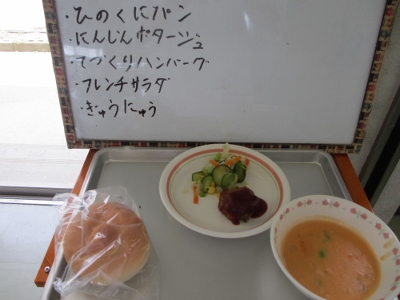 ・ひのくにパン
・にんじんポタージュ
・てづくりハンバーグ
・フレンチサラダ
・ぎゅうにゅう